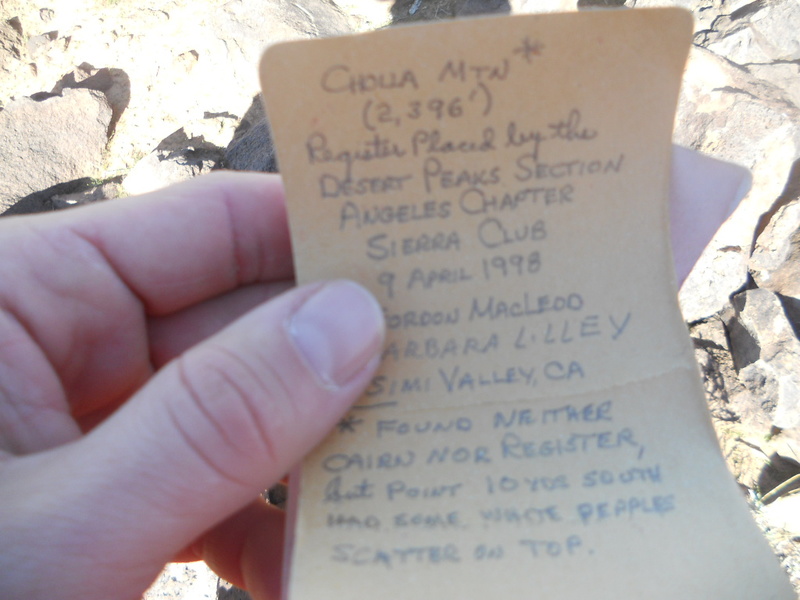 CHOLLA MTN*
(2,396')
Register Placed by the
DESERT PEAKS SECTION
ANGELES CHAPTER
SIERRA CLUB
9 APRIL 1998
GORDON MACLEOD
BARBARA LILLEY
SIMI VALLEY, CA
* FOUND NEITHER
CAIRN NOR REGISTER,
but POINT 10 YDS SOUTH
HAD SOME WHITE PEBBLES
SCATTER ON TOP.